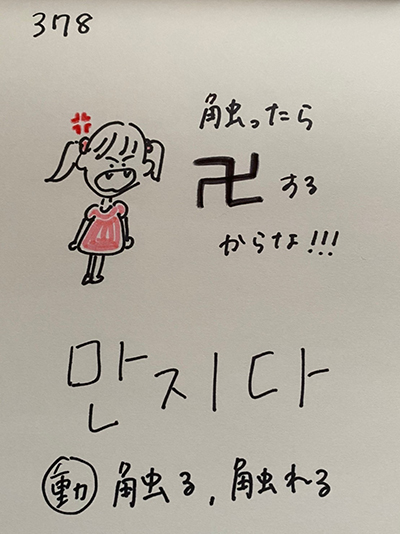 378
触ったら
卍する
からな!!!
만지다
動 触る, 触れる